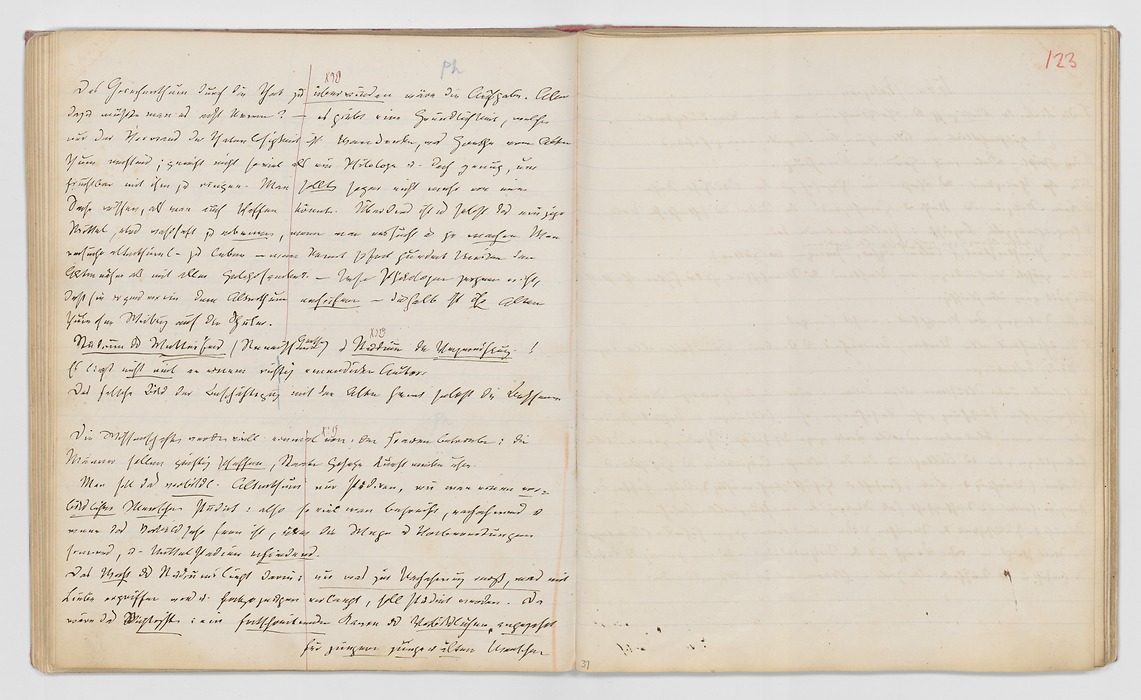 Ph
Das Griechenthum durch die That zu überwinden wäre die Aufgabe. Aber
dazu müßte man es erst kennen! — es giebt eine Gründlichkeit, welche
nur der Vorwand der Thatenlosigkeit ist. Man denke, was Goethe vom Alter-
thum verstand; gewiß nicht soviel als ein Philologe u. doch genug, um
fruchtbar mit ihm zu ringen. Man sollte sogar nicht mehr von einer
Sache wissen, als man auch schaffen könnte. Überdies ist es selbst das einzige
Mittel, etwas wahrhaft zu erkennen, wenn man versucht es zu machen. Man
versuche alterthüml. zu leben — man kommt sofort hundert Meilen den
Alten näher als mit aller Gelehrsamkeit. — Unsre Philologen zeigen nicht,
daß sie irgend worin dem Alterthum nacheifern — deshalb ist ihr Alter-
thum ohne Wirkung auf die Schüler.
Studium des Wetteifers (Renaissance Goethe) u Studium der Verzweiflung!
Es liegt nicht viel an einem richtig emendirten Autor.
Das falsche Bild der Beschäftigung mit den Alten hemmt selbst die Besseren
Die Wissenschaften werden viell. einmal von den Frauen betrieben: die
Männer sollen geistig schaffen, Staaten Gesetze Kunstwerke usw.
Man soll das vorbildl. Alterthum nur studiren, wie man einen vor-
bildlichen Menschen studirt: also so viel man begreift, nachahmend u
wenn das Vorbild sehr fern ist, über die Wege u Vorbereitungen
sinnend, u. Mittelstadien erfindend.
Das Maaß des Studiums liegt darin: nur was zur Nachahmung reizt, was mit
Liebe ergriffen wird u. fortzuzeugen verlangt, soll studirt werden. Da
wäre das Richtigste: ein fortschreitender Kanon des Vorbildlichen, angepaßt
für jüngere junge u ältere Menschen
123
37